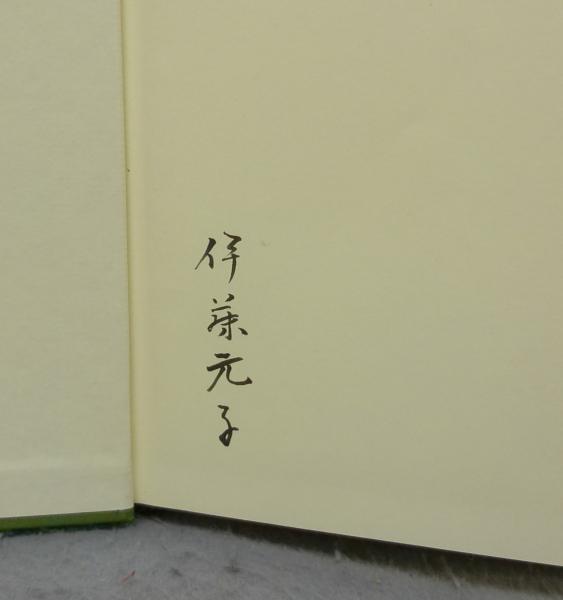 伊藤元子